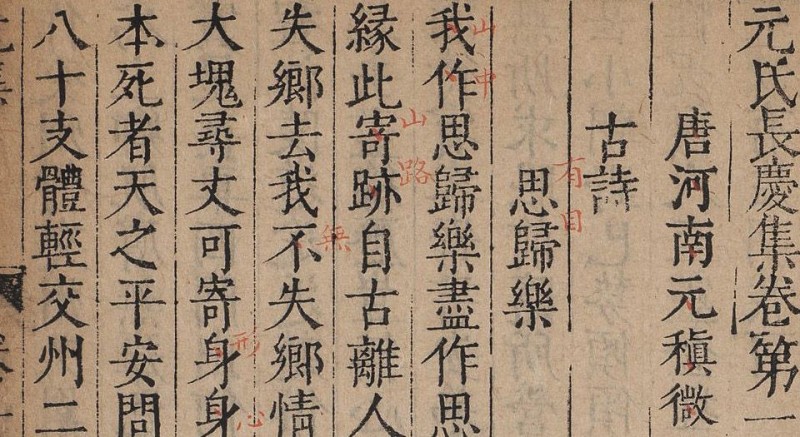 元氏長慶集卷第一
唐河南元稹微
古詩
有目
思歸樂
山中
我作思歸樂盡作思
山路
緣此寄跡自古離人
無
失鄉去我不失鄉情
形
心
大塊尋丈可寄身身
本死者天之平安問
八十支體輕交州二